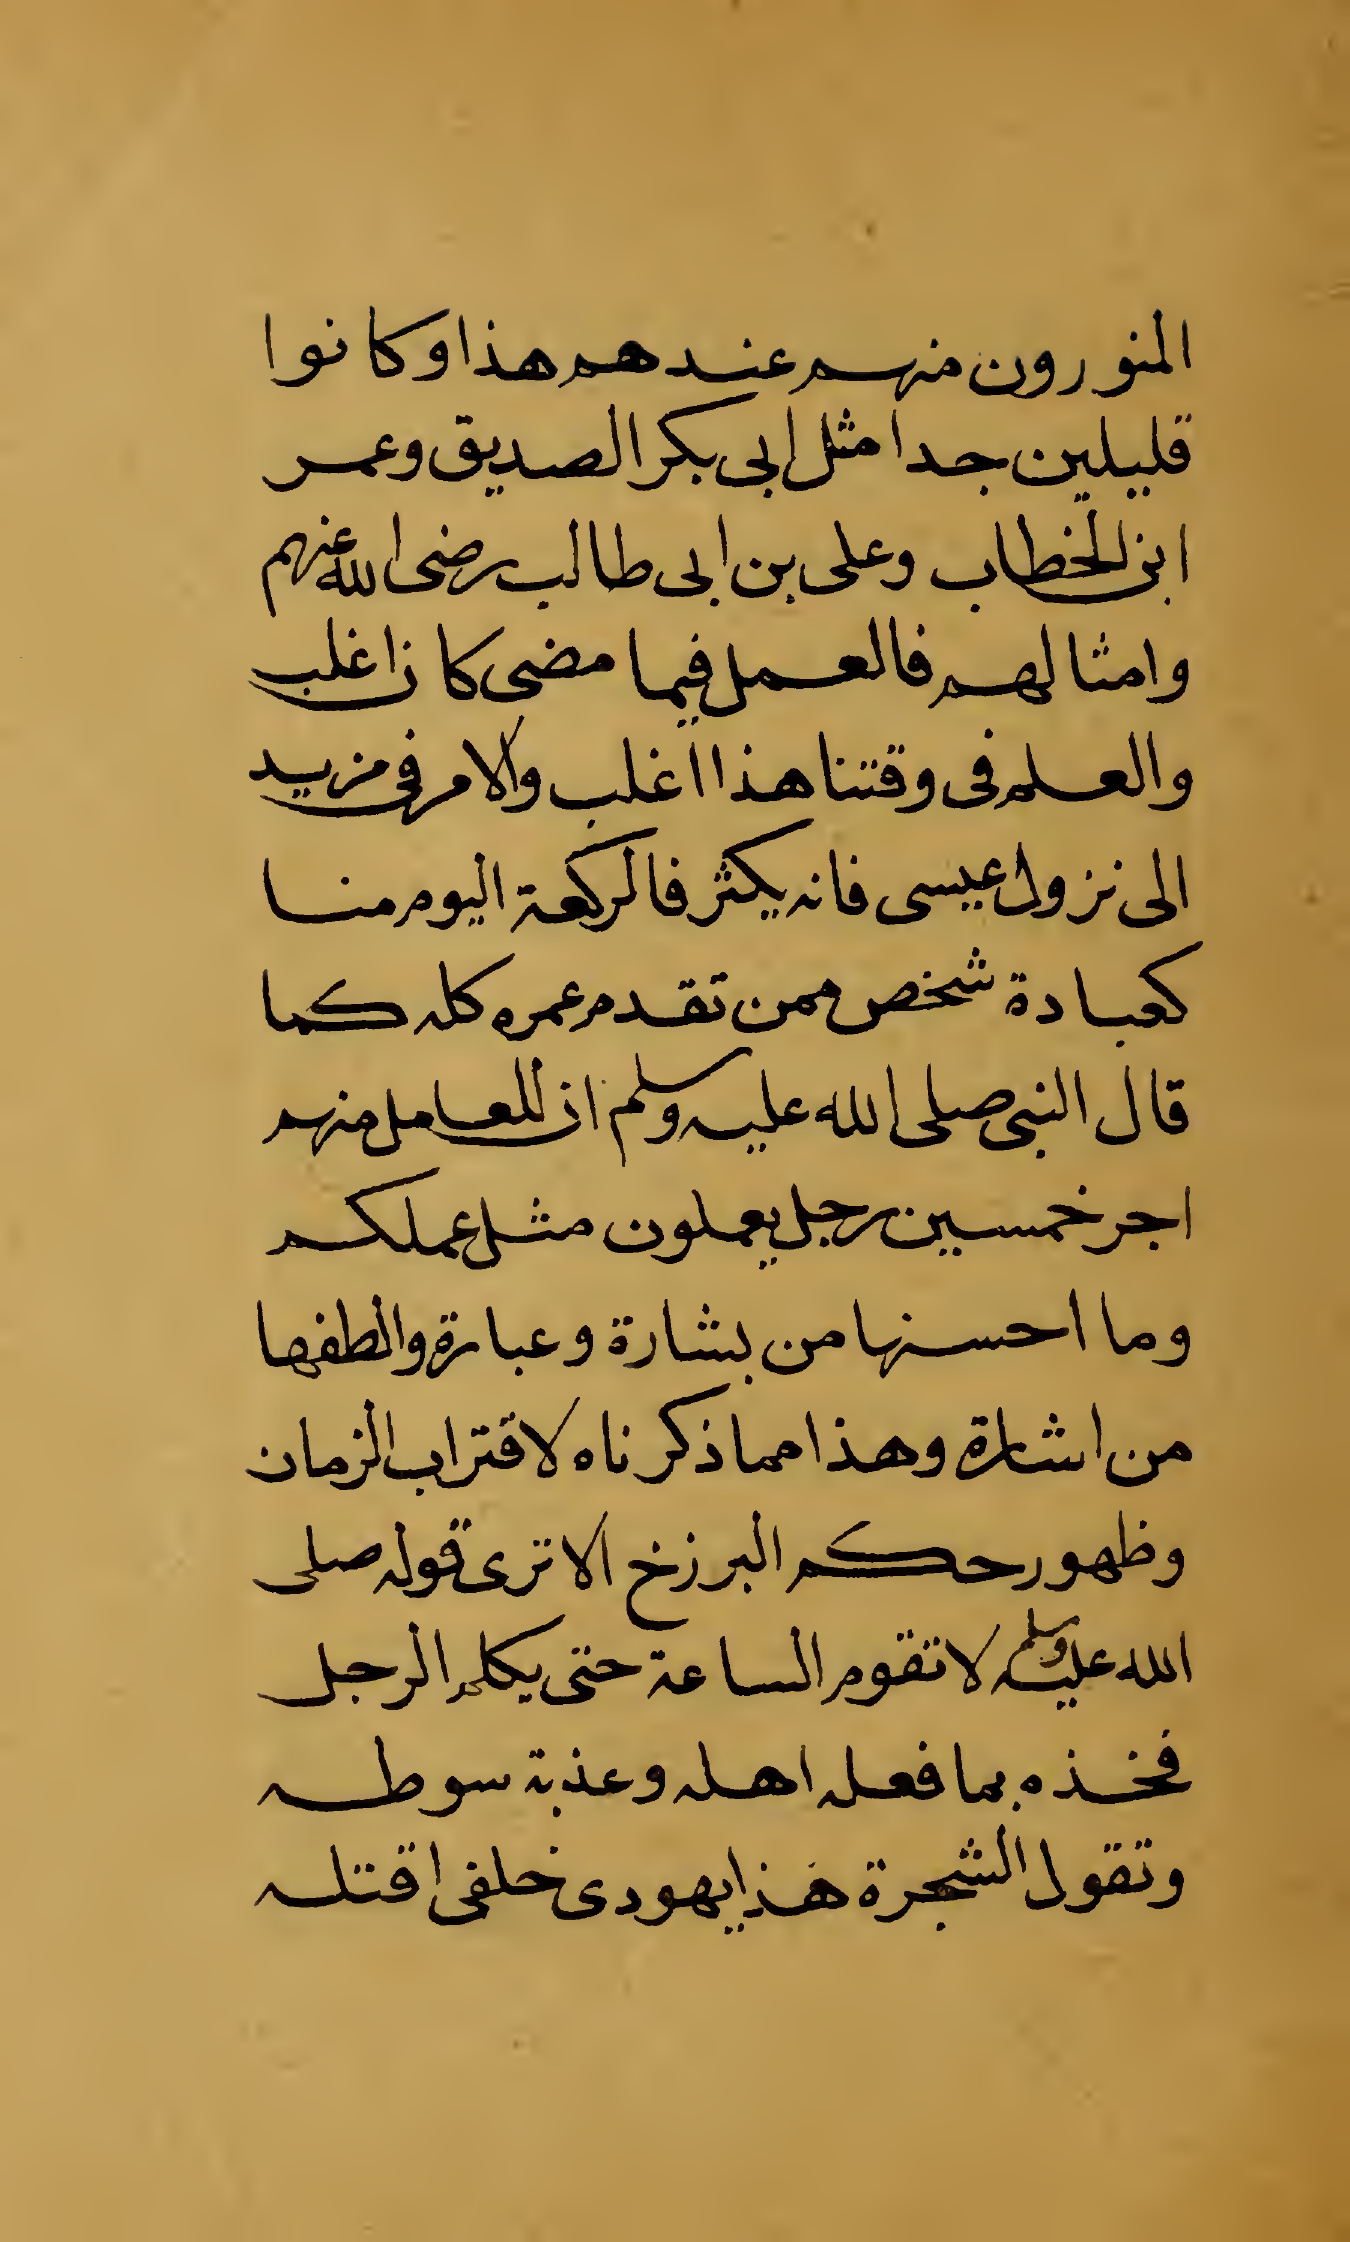 المنورون منهم عندهم هذا وكانوا
قليلين جدا مثل ابى بكر الصديق وعمر
ابن الخطاب وعلى بن ابى طالب رضى الله عنهم
وامثالهم فالعمل فيما مضى كان اغلب
والعلم فى وقتنا هذا اغلب والامر فى مزيد
الى نزول عيسى فانه يكثر فالركعة اليوم منا
كعبادة شخص ممن تقدم عمره كله كما
قال النبى صلى الله عليه وسلم ان للعامل منهم
اجر خمسين رجل يعملون مثل عملكم
وما احسنها من بشارة وعبارة والطفها
من اشارة وهذا مما ذكرناه لاقتراب الزمان
وظهور حكم البرزخ الا ترى قوله صلى
الله عليه وسلم لا تقوم الساعة حتى يكلم الرجل
فخذه بما فعله اهله وعذبة سوطه
وتقول الشجرة هذا يهودى خلفى اقتله